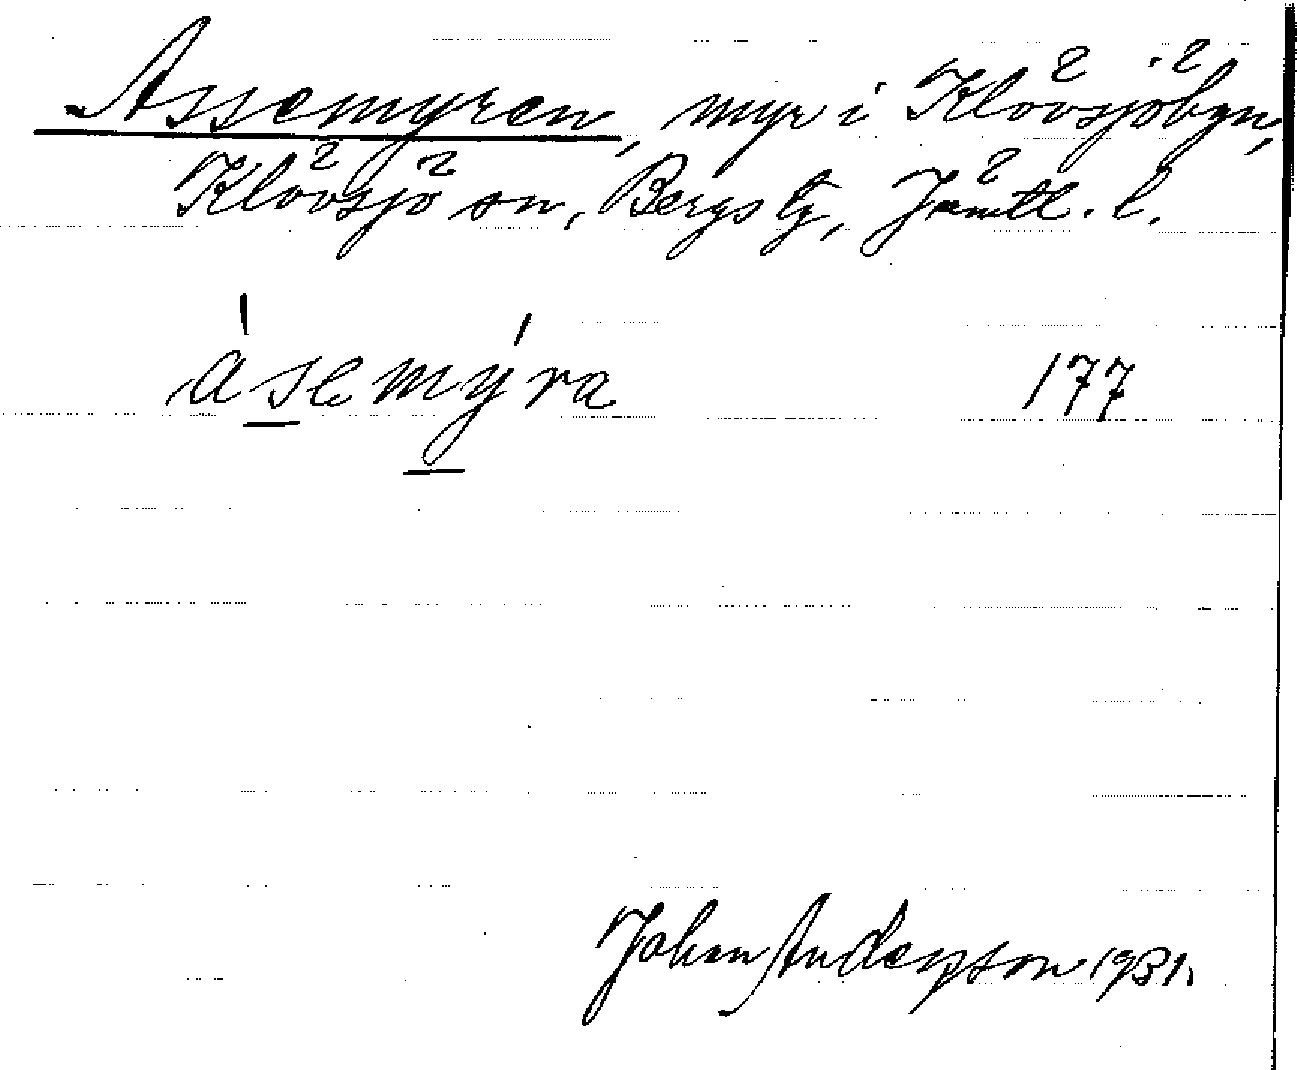 Assemyren, myr i Klövsjöbyn,
Klövsjö sn, Bergs tg, Jämtl. l.
ásemýra 177
Johan Anderson 1931.